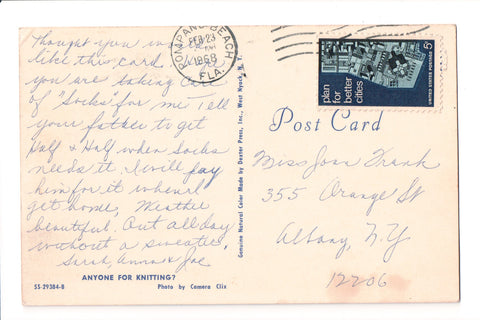 Thought you
like this card.
you are taking care
of "Socks" for me. Tell
your father to get
Half & Half when Socks
needs it. I will pay
him for it when I
get home. Weather
beautiful. Out all day
without a sweater.
Sarah, Anna & Joe
ANYONE FOR KNITTING?
SS-29384-B Photo by Camera Clix
Genuine Natural Color Made by Dexter Press, Inc., West Nyack, N. Y.
POMPANO BEACH
FEB 23
1968
FLA.
plan
for
better
cities
UNITED STATES POSTAGE 6¢
Post Card
Miss Joan Frank
355 Orange St
Albany, N.Y
12206